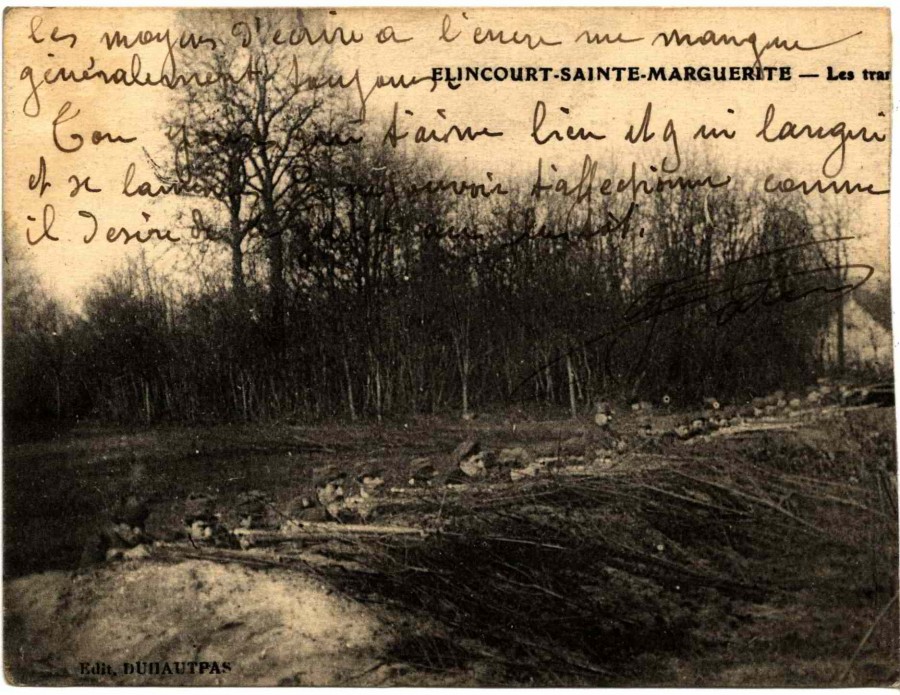 les moyens d'écrire a l'encre me manque
généralement toujours
ELINCOURT-SAINTE-MARGUERITE — Les tran
Ton qui t'aime bien et qui langui
et se lamente pouvoir t'affectionner comme
il desire de
Edit. DUHAUTPAS